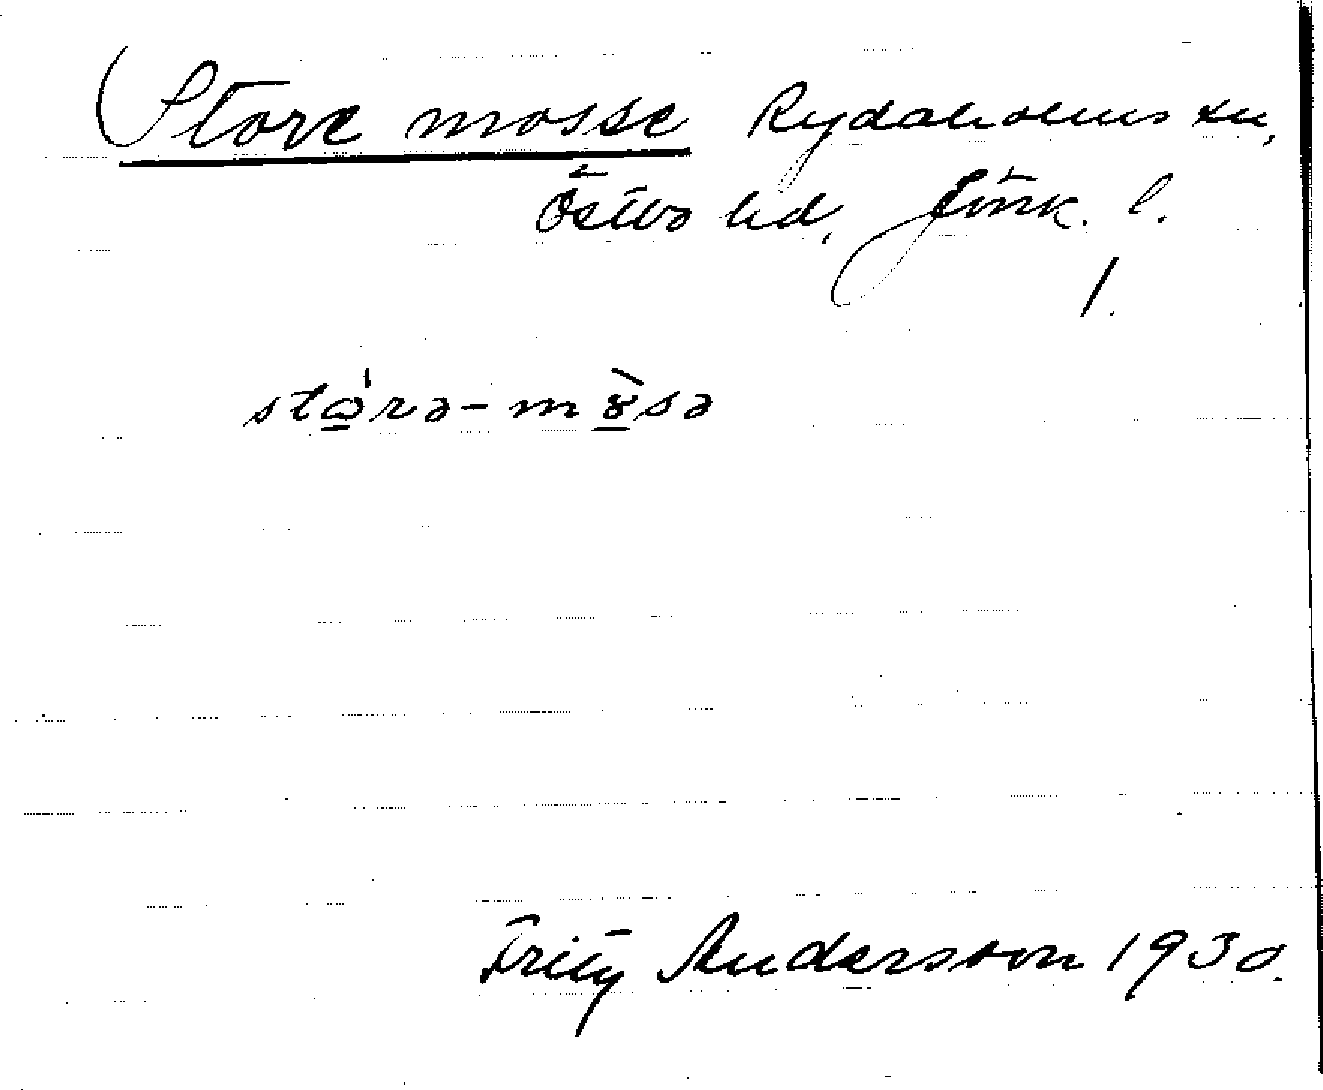 (Store mosse Rydaholms sn,
Östbo hd, Jönk. l.
1.
stó̠rə-mò̠sə
Fritz Andersson 1930.